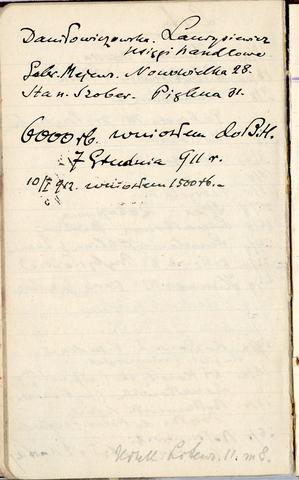 Daniłowiczowska. Lawrysiewicz
Księgi handlowe
Gebr. Meyer. Nowowielka 28.
Stan. Szober. Piękna 31.
6000 rb. wniosłem do B.H.
7 Grudnia 911 r.
10/I 912. wniosłem 1500 rb.-
11. m 8.